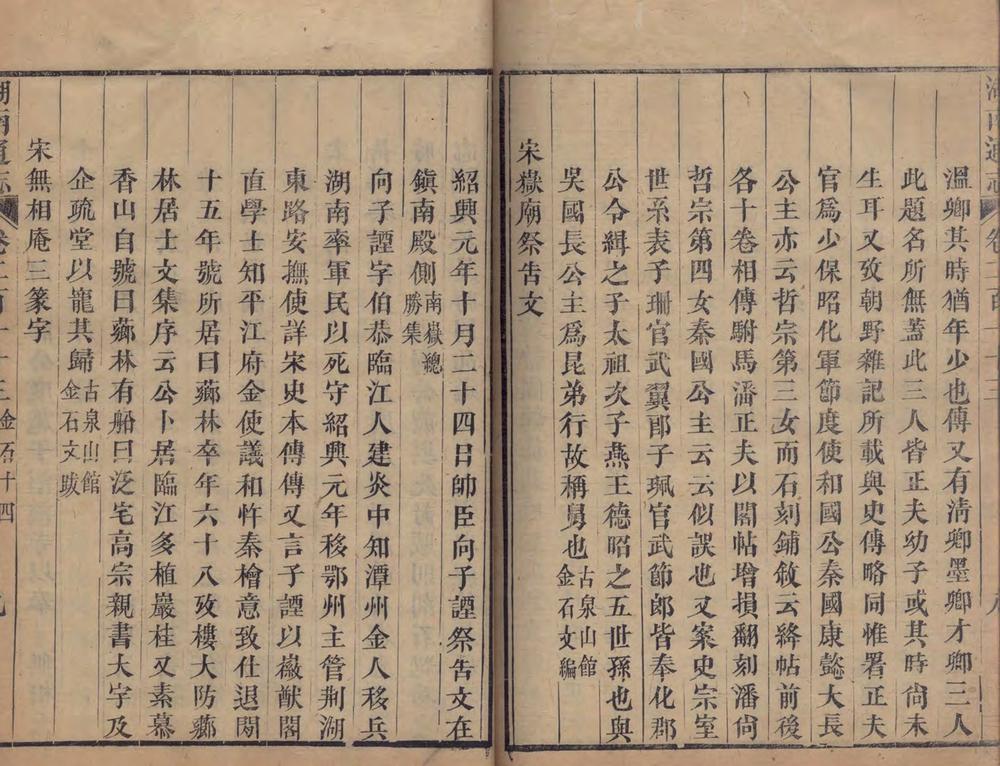 湖南通志 卷二百七十三
溫卿其時猶年少也傳又有清卿墨卿才卿三人
此題名所無蓋此三人皆正夫幼子或其時尙未
生耳又攷朝野雜記所載與史傳略同惟署正夫
官爲少保昭化軍節度使和國公秦國康懿大長
公主亦云哲宗第三女而石刻鋪敘云絳帖前後
各十卷相傳駙馬潘正夫以閣帖增損翻刻潘尙
哲宗第四女秦國公主云云似誤也又案史宗室
世系表子珊官武翼郎子珮官武節郎皆奉化郡
公令緝之子太祖次子燕王德昭之五世孫也與
吳國長公主爲昆弟行故稱舅也古泉山館金石文編
宋嶽廟祭告文
紹興元年十月二十四日帥臣向子諲祭告文在
鎮南殿側南嶽總勝集
向子諲字伯恭臨江人建炎中知潭州金人移兵
湖南率軍民以死守紹興元年移鄂州主管荆湖
東路安撫使詳宋史本傳傳又言子諲以徽猷閣
直學士知平江府金使議和忤秦檜意致仕退閒
十五年號所居曰薌林卒年六十八攷樓大防薌
林居士文集序云公卜居臨江多植巖桂又素慕
香山自號曰薌林有船曰泛宅高宗親書大字及
企疏堂以寵其歸古泉山館金石文跋
宋無相庵三篆字
湖南通志 金石十四 九